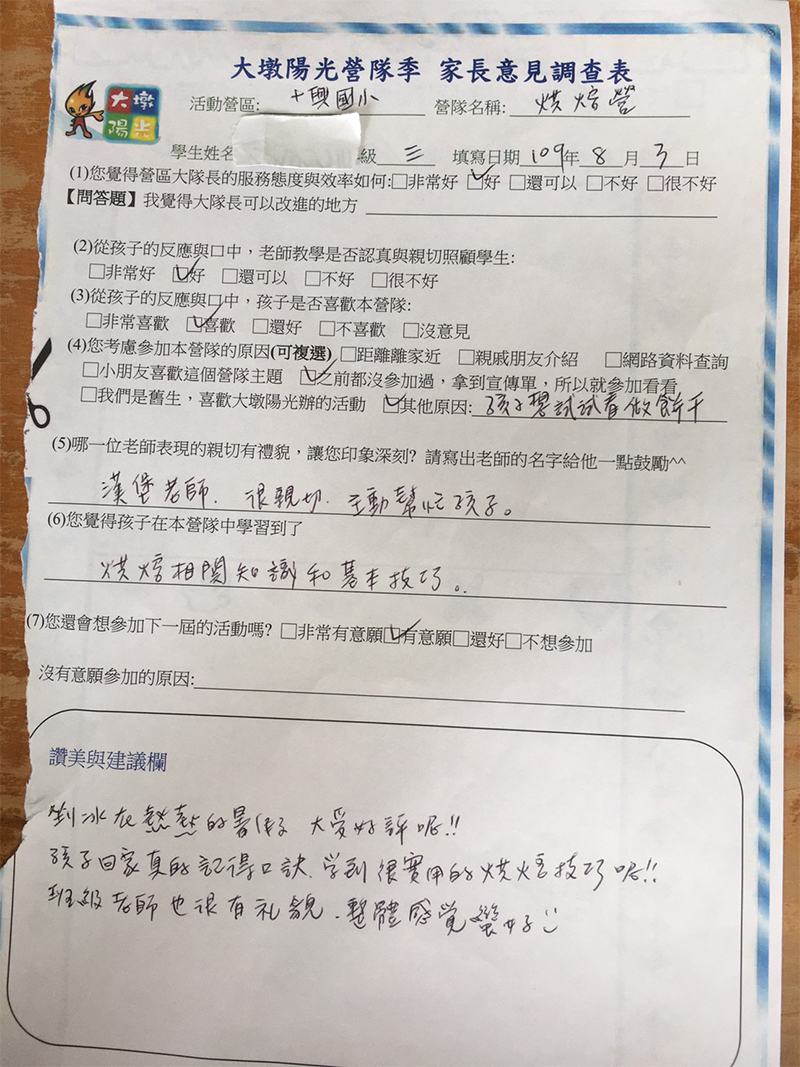 大墩陽光營隊季 家長意見調查表
大墩
陽光
活動營區: 十興國小 營隊名稱: 烘焙營
學生姓名 級 三 填寫日期 109年 8 月 3 日
(1)您覺得營區大隊長的服務態度與效率如何:□非常好 ☑好 □還可以 □不好 □很不好
【問答題】我覺得大隊長可以改進的地方
(2)從孩子的反應與口中，老師教學是否認真與親切照顧學生:
□非常好 ☑好 □還可以 □不好 □很不好
(3)從孩子的反應與口中，孩子是否喜歡本營隊:
□非常喜歡 ☑喜歡 □還好 □不喜歡 □沒意見
(4)您考慮參加本營隊的原因(可複選) □距離離家近 □親戚朋友介紹 □網路資料查詢
□小朋友喜歡這個營隊主題 ☑之前都沒參加過，拿到宣傳單，所以就參加看看
□我們是舊生，喜歡大墩陽光辦的活動 ☑其他原因: 孩子想試試看做餅干
(5)哪一位老師表現的親切有禮貌，讓您印象深刻? 請寫出老師的名字給他一點鼓勵^^
漢堡老師. 很親切. 主動幫忙孩子。
(6)您覺得孩子在本營隊中學習到了
烘焙相關知識和基本技巧。.
(7)您還會想參加下一屆的活動嗎? □非常有意願☑有意願□還好□不想參加
沒有意願參加的原因:
讚美與建議欄
剉冰在熱熱的暑假 大受好評呢!!
孩子回家真的記得口訣. 学到很實用的烘焙技巧呢!!
班級老師也很有礼貌. 整體感覺蠻好